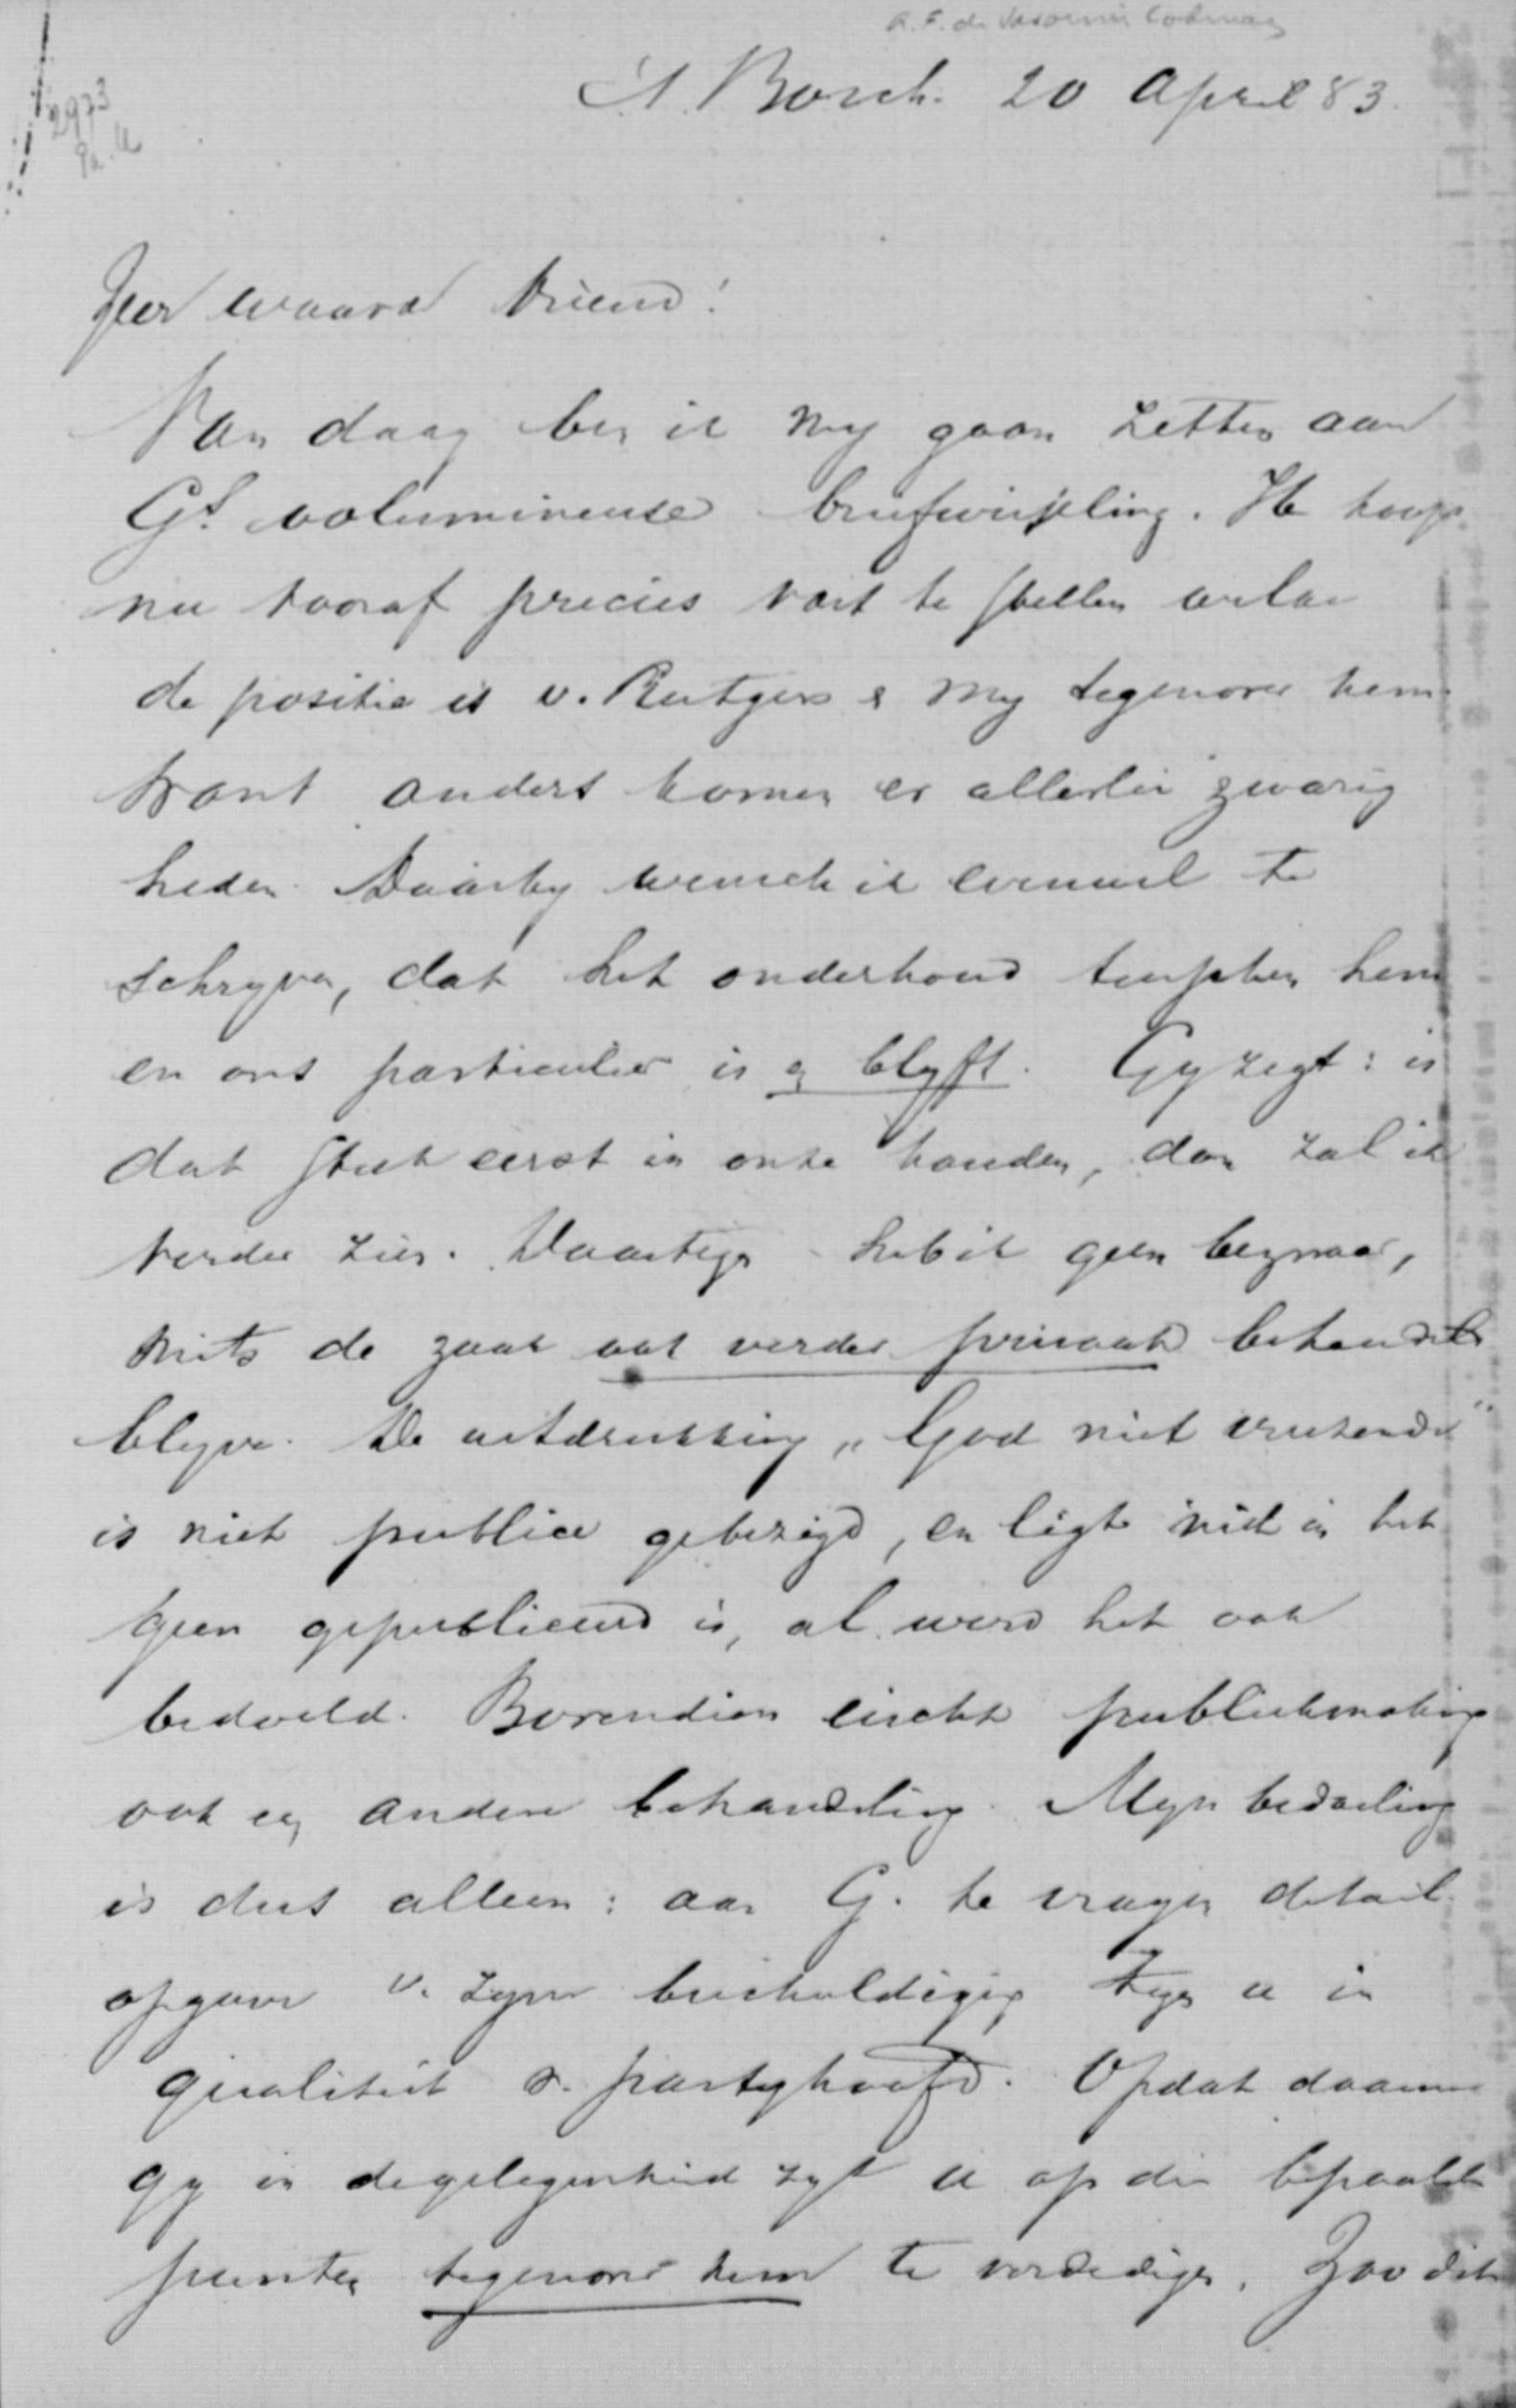 A.F. de Savornin Lohman
's Bosch. 20 April 83.
2973
Zeer waarde Vriend!
Van daag ben ik my gaan zetten aan
Gs. volumineuse briefwisseling. Ik hoop
nu vooraf precies vast te stellen welke
de positie is v. Rutgers & my tegenover hem
want anders komen er allerlei zwarig
heden. Daarby wensch ik evenwel te
schryven, dat het onderhoud tusschen hem
en ons particulier is en blyft. Gy zegt: is
dat stuk eerst in onze handen, dan zal ik
verder zien. Daartegen heb ik geen bezwaar,
mits de zaak ook verder privaat behandeld
blyve. De uitdrukking „God niet vreezende"
is niet publiek gebezigd, en ligt niet in het
geen gepubliceerd is, al werd het ook
bedoeld. Bovendien eischt publiekmaking
ook een andere behandeling. Myn bedoeling
is dus alleen: aan G. te vragen detail
opgave v. zyne beschuldiging tegen u in
qualiteit v. partyhoofd. Opdat daarna
gy in de gelegenheid zyt u op die bepaalde
punten tegenover hem te verdedigen. Zoo dit